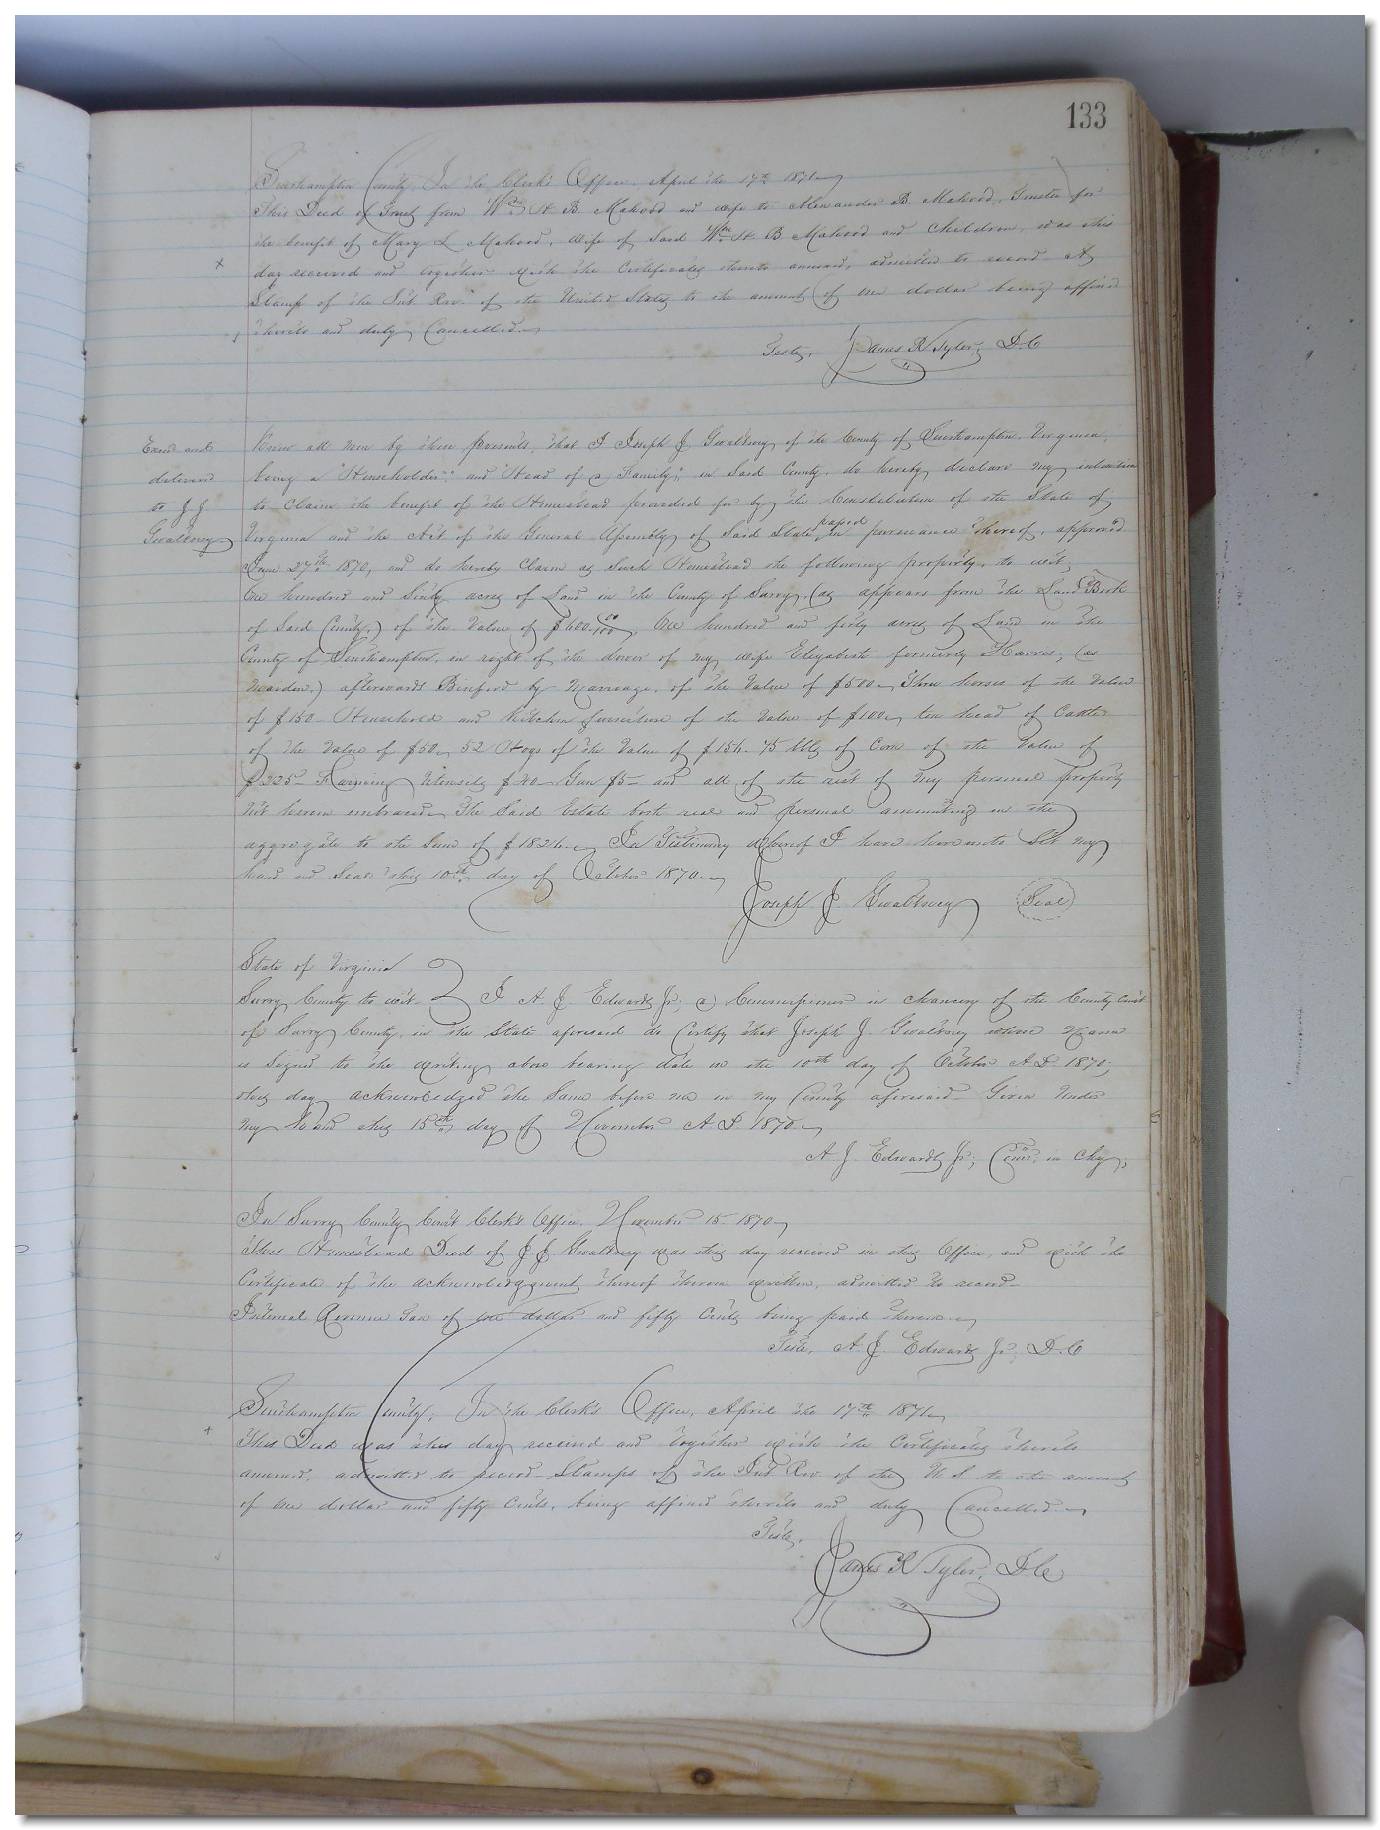 133
Southampton County, In the Clerk's Office, April the 17th 1871
This Deed of Trust from Wm H. B. Mahood and wife to Alexander B Mahood, Trustee for
the benefit of Mary L Mahood, wife of Said Wm H B Mahood and Children, was this
x day received and together with the Certificates thereto annexed, admitted to record A
Stamp of the Int Rev. of the United States to the amount of one dollar being affixed
thereto and duly Cancelled.
Teste, James R Tyler, D.C
Exd and
delivered
to J J
Gwaltney
Know all men by these presents, that I Joseph J Gwaltney of the County of Southampton, Virginia,
being a "Householder" and "Head of a Family," in Said County, do hereby declare my intention
to claim the benefit of the Homestead provided for by the Constitution of the State of
Virginia and the Act of the General Assembly of Said State passed in pursuance thereof, approved
June 27th 1870, and do hereby Claim as Such Homestead the following property, to wit,
One hundred and Sixty acres of Land in the County of Surry, (as appears from the Land Book
of Said County,) of the Value of $600.00/100, One hundred and fifty acres of Land in the
County of Southampton, in right of the dower of my wife Elizabeth formerly Harris, (as
Maiden,) afterwards Binford by Marriage, of the Value of $500 Three horses of the Value
of $150 Household and Kitchen furniture of the Value of $100 ten head of Cattle
of the Value of $50 52 Hogs of the Value of $154. 75 bbls of Corn of the Value of
$225 Farming Utensils $40 Gun $5 and all of the rest of my personal property
not herein embraced The Said Estate both real and personal amounting in the
aggregate to the Sum of $1824. In Testimony whereof I have hereunto Set my
hand and Seal this 10th day of October 1870.
Joseph J Gwaltney Seal
State of Virginia
Surry County to wit. I A. J. Edwards Jr, a Commissioner in chancery of the County Court
of Surry County, in the State aforesaid do Certify that Joseph J. Gwaltney whose Name
is Signed to the writing above bearing date on the 10th day of October A.D. 1870,
this day acknowledged the Same before me in my County aforesaid Given Under
my hand this 15th day of November A D 1870
A. J. Edwards Jr, Comr. in Chy,
In Surry County Court Clerk's Office. November 15 1870
This Homestead Deed of J J Gwaltney was this day received in this Office, and with the
Certificate of the acknowledgment thereof thereon written, admitted to record
Internal Revenue Tax of one dollar and fifty Cents being paid thereon
Teste, A. J. Edwards Jr, D.C
Southampton County, In the Clerk's Office, April the 17th 1871
x This Deed was this day received and together with the Certificates thereto
annexed, admitted to record Stamps of the Int Rev. of the U S to the amount
of one dollar and fifty Cents, being affixed thereto and duly Cancelled
Teste,
James R Tyler, D.C